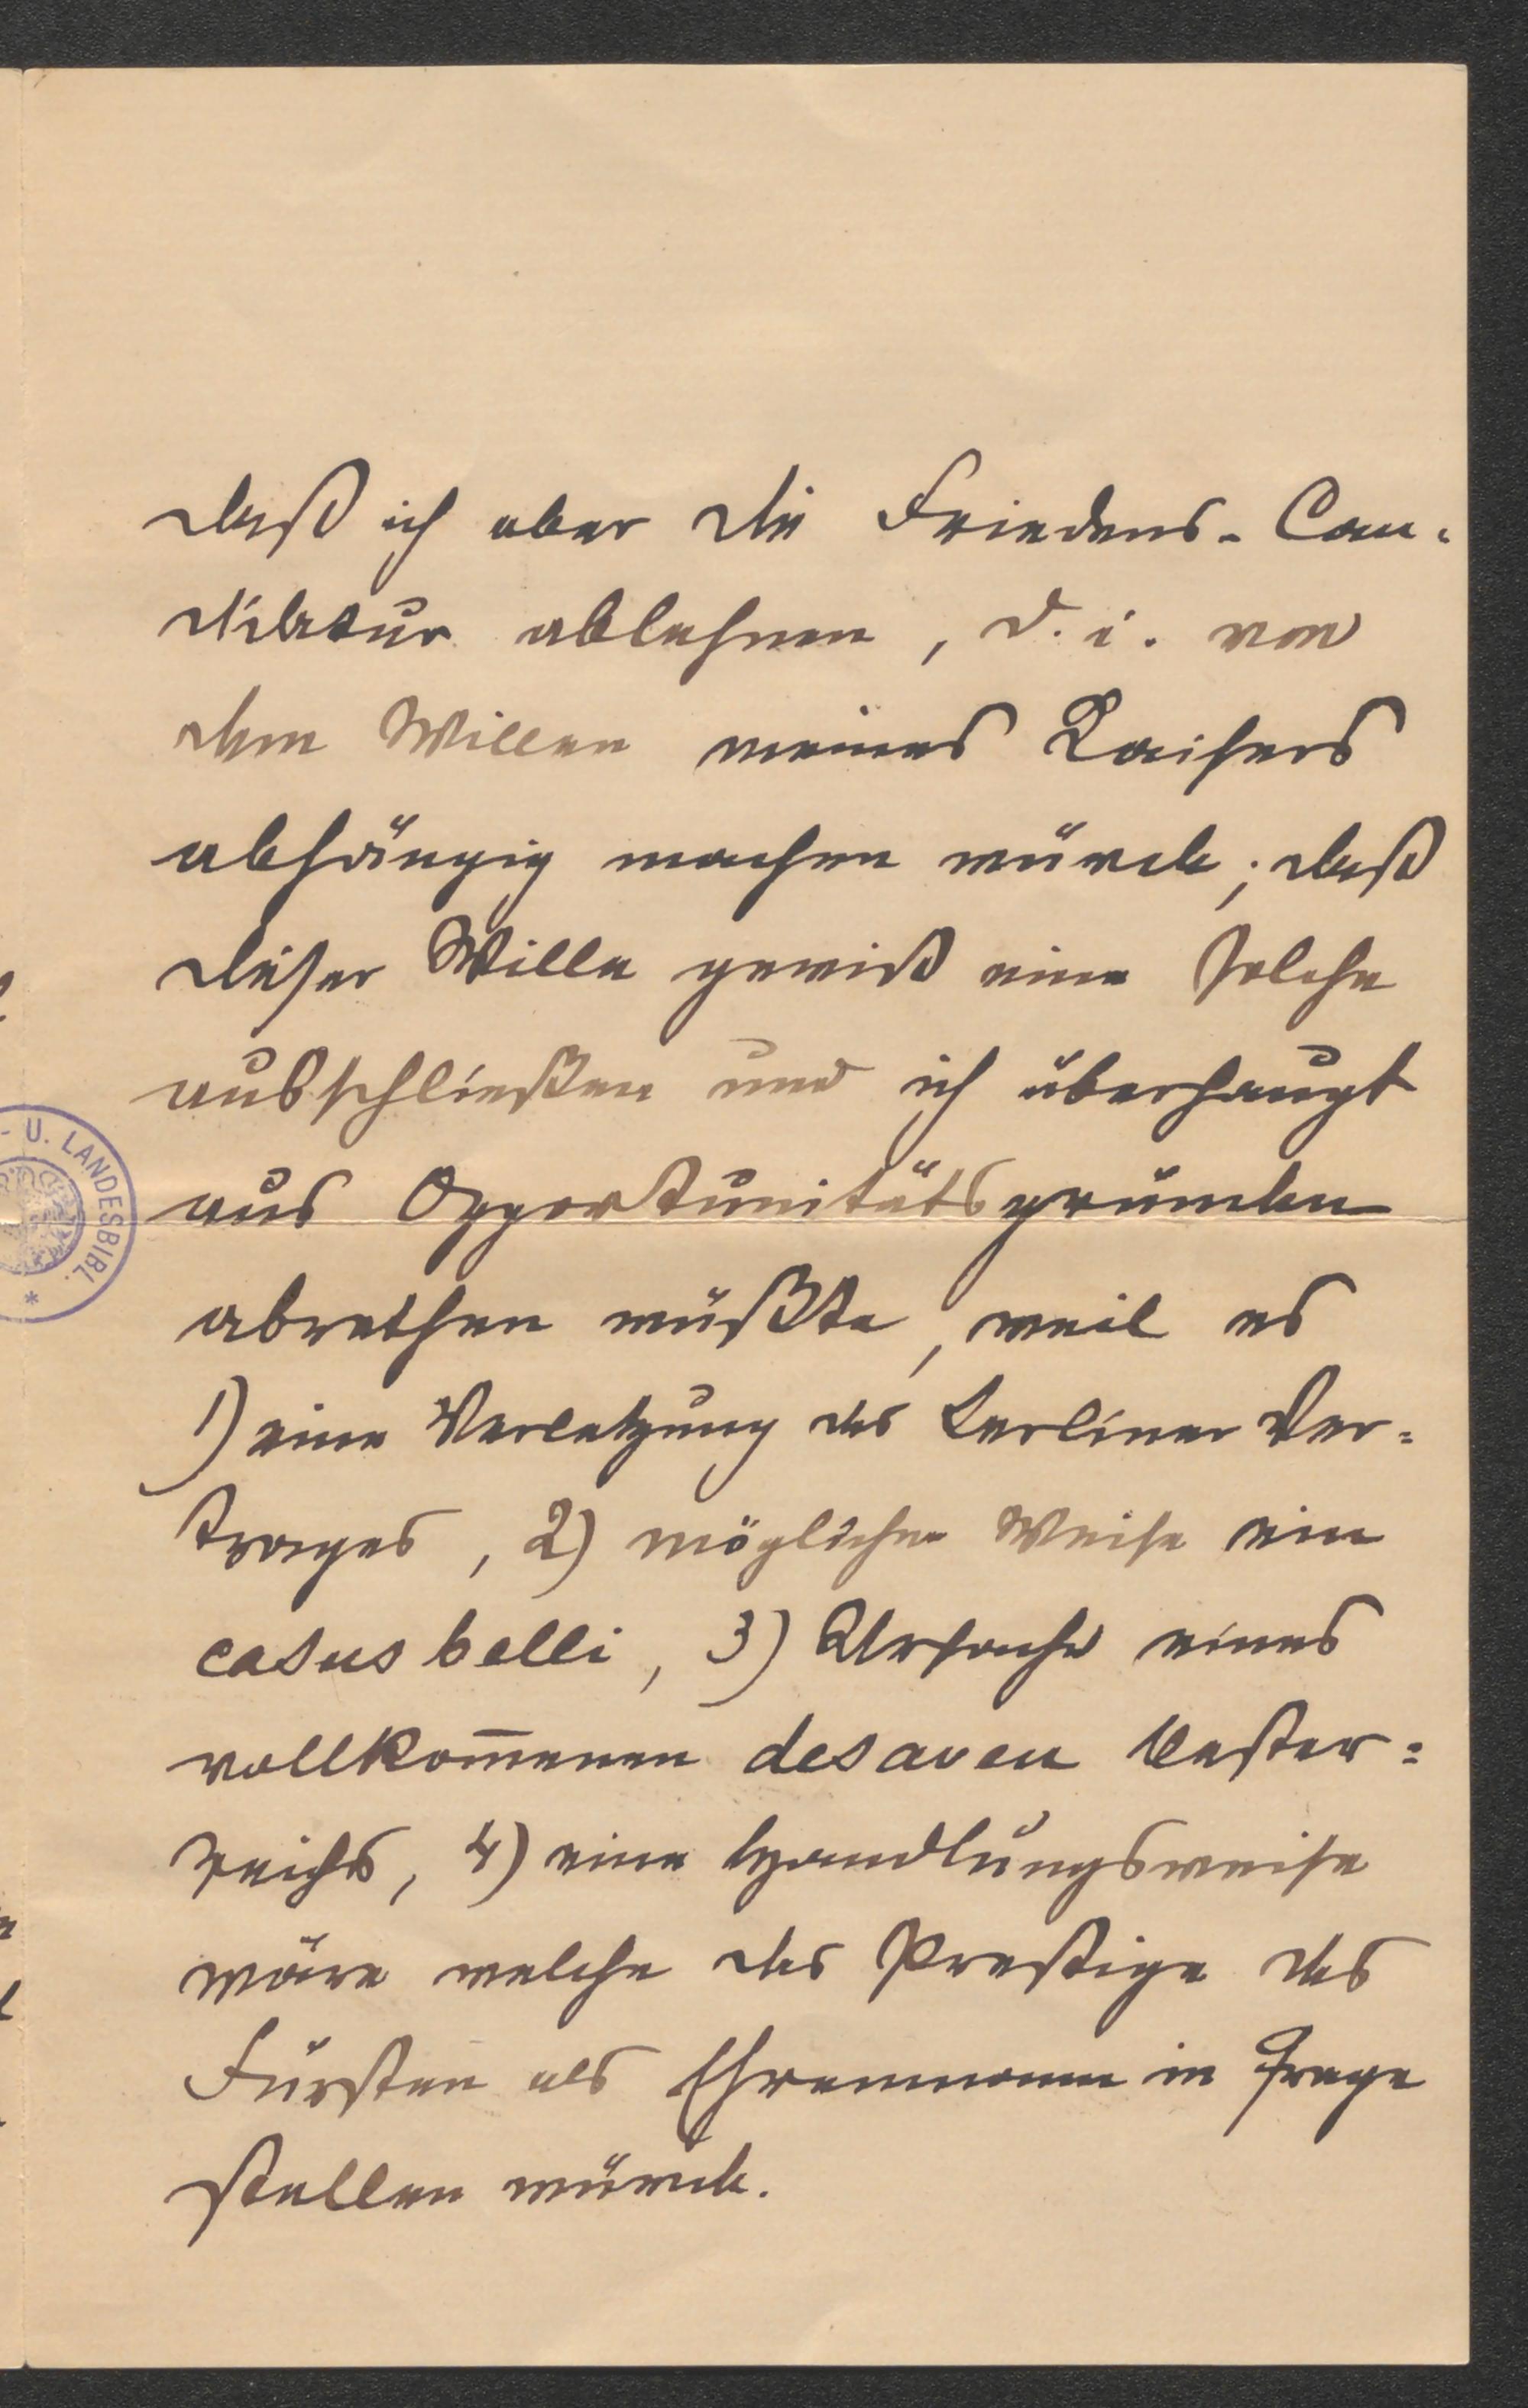 daß ich aber die Friedens- Can-
didatur ablehnen, d. i. von
dem Willen meines Kaisers
abhängig machen würde; daß
dieser Wille gewiß eine solche
ausschließen und ich überhaupt
aus Opportunitätsgründen
abrathen müßte, weil es
1) eine Verletzung des Berliner Ver=
trages, 2) möglicher Weise ein
casus belli, 3) Ursache eines
vollkom̅enen desaveu Oester=
reichs, 4) eine Handlungsweise
wäre welche das Prestige des
Fürsten als Ehrenmann in Frage
stellen würde.
- U. LANDESBIBL.
*